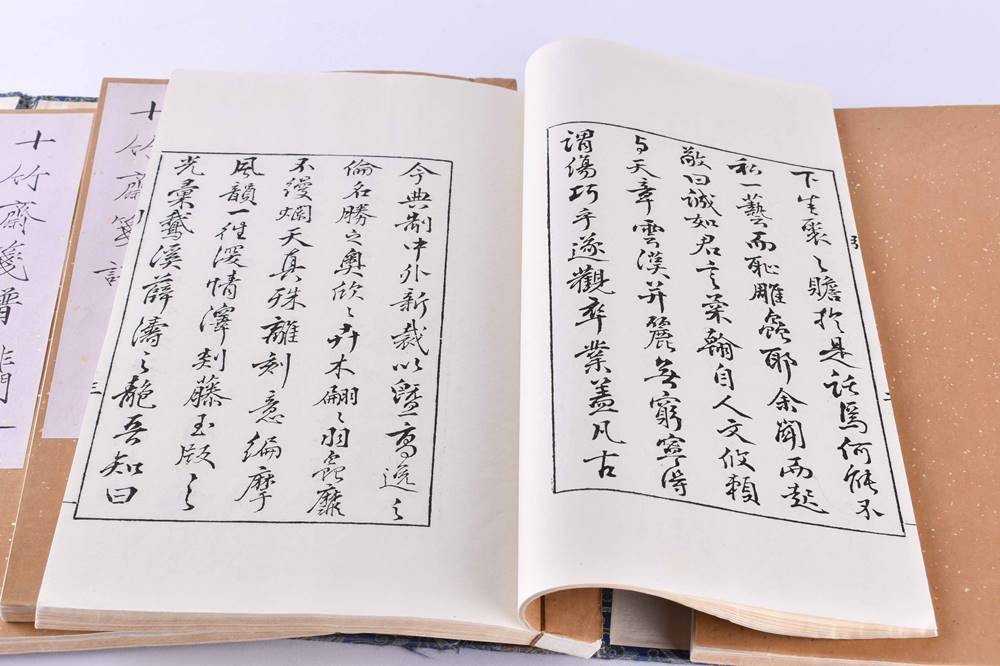 下生裘之瞻於是話焉何能不
私一藝而恥雕蟲耶余聞而起
敬曰誠如君言翰自人文攸賴
与天章雲漢并麗無窮寧得
謂傷巧乎遂觀卒業蓋凡古
今典制中外新裁以暨高逸之
倫名勝之奧欣〻卉木翩〻羽蟲靡
不縵爛天真殊離刻意編摩
風韻一往深情澤剡藤玉版之
光彙鵞溪薛濤之艷吾知曰
三
十竹齋箋譜
十竹齋箋譜